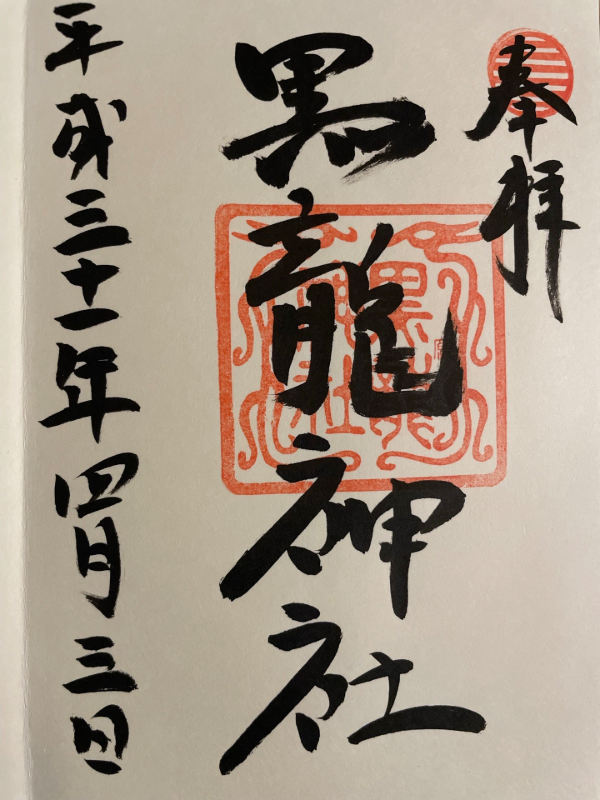 奉拝
黒龍神社
平成三十一年四月三日